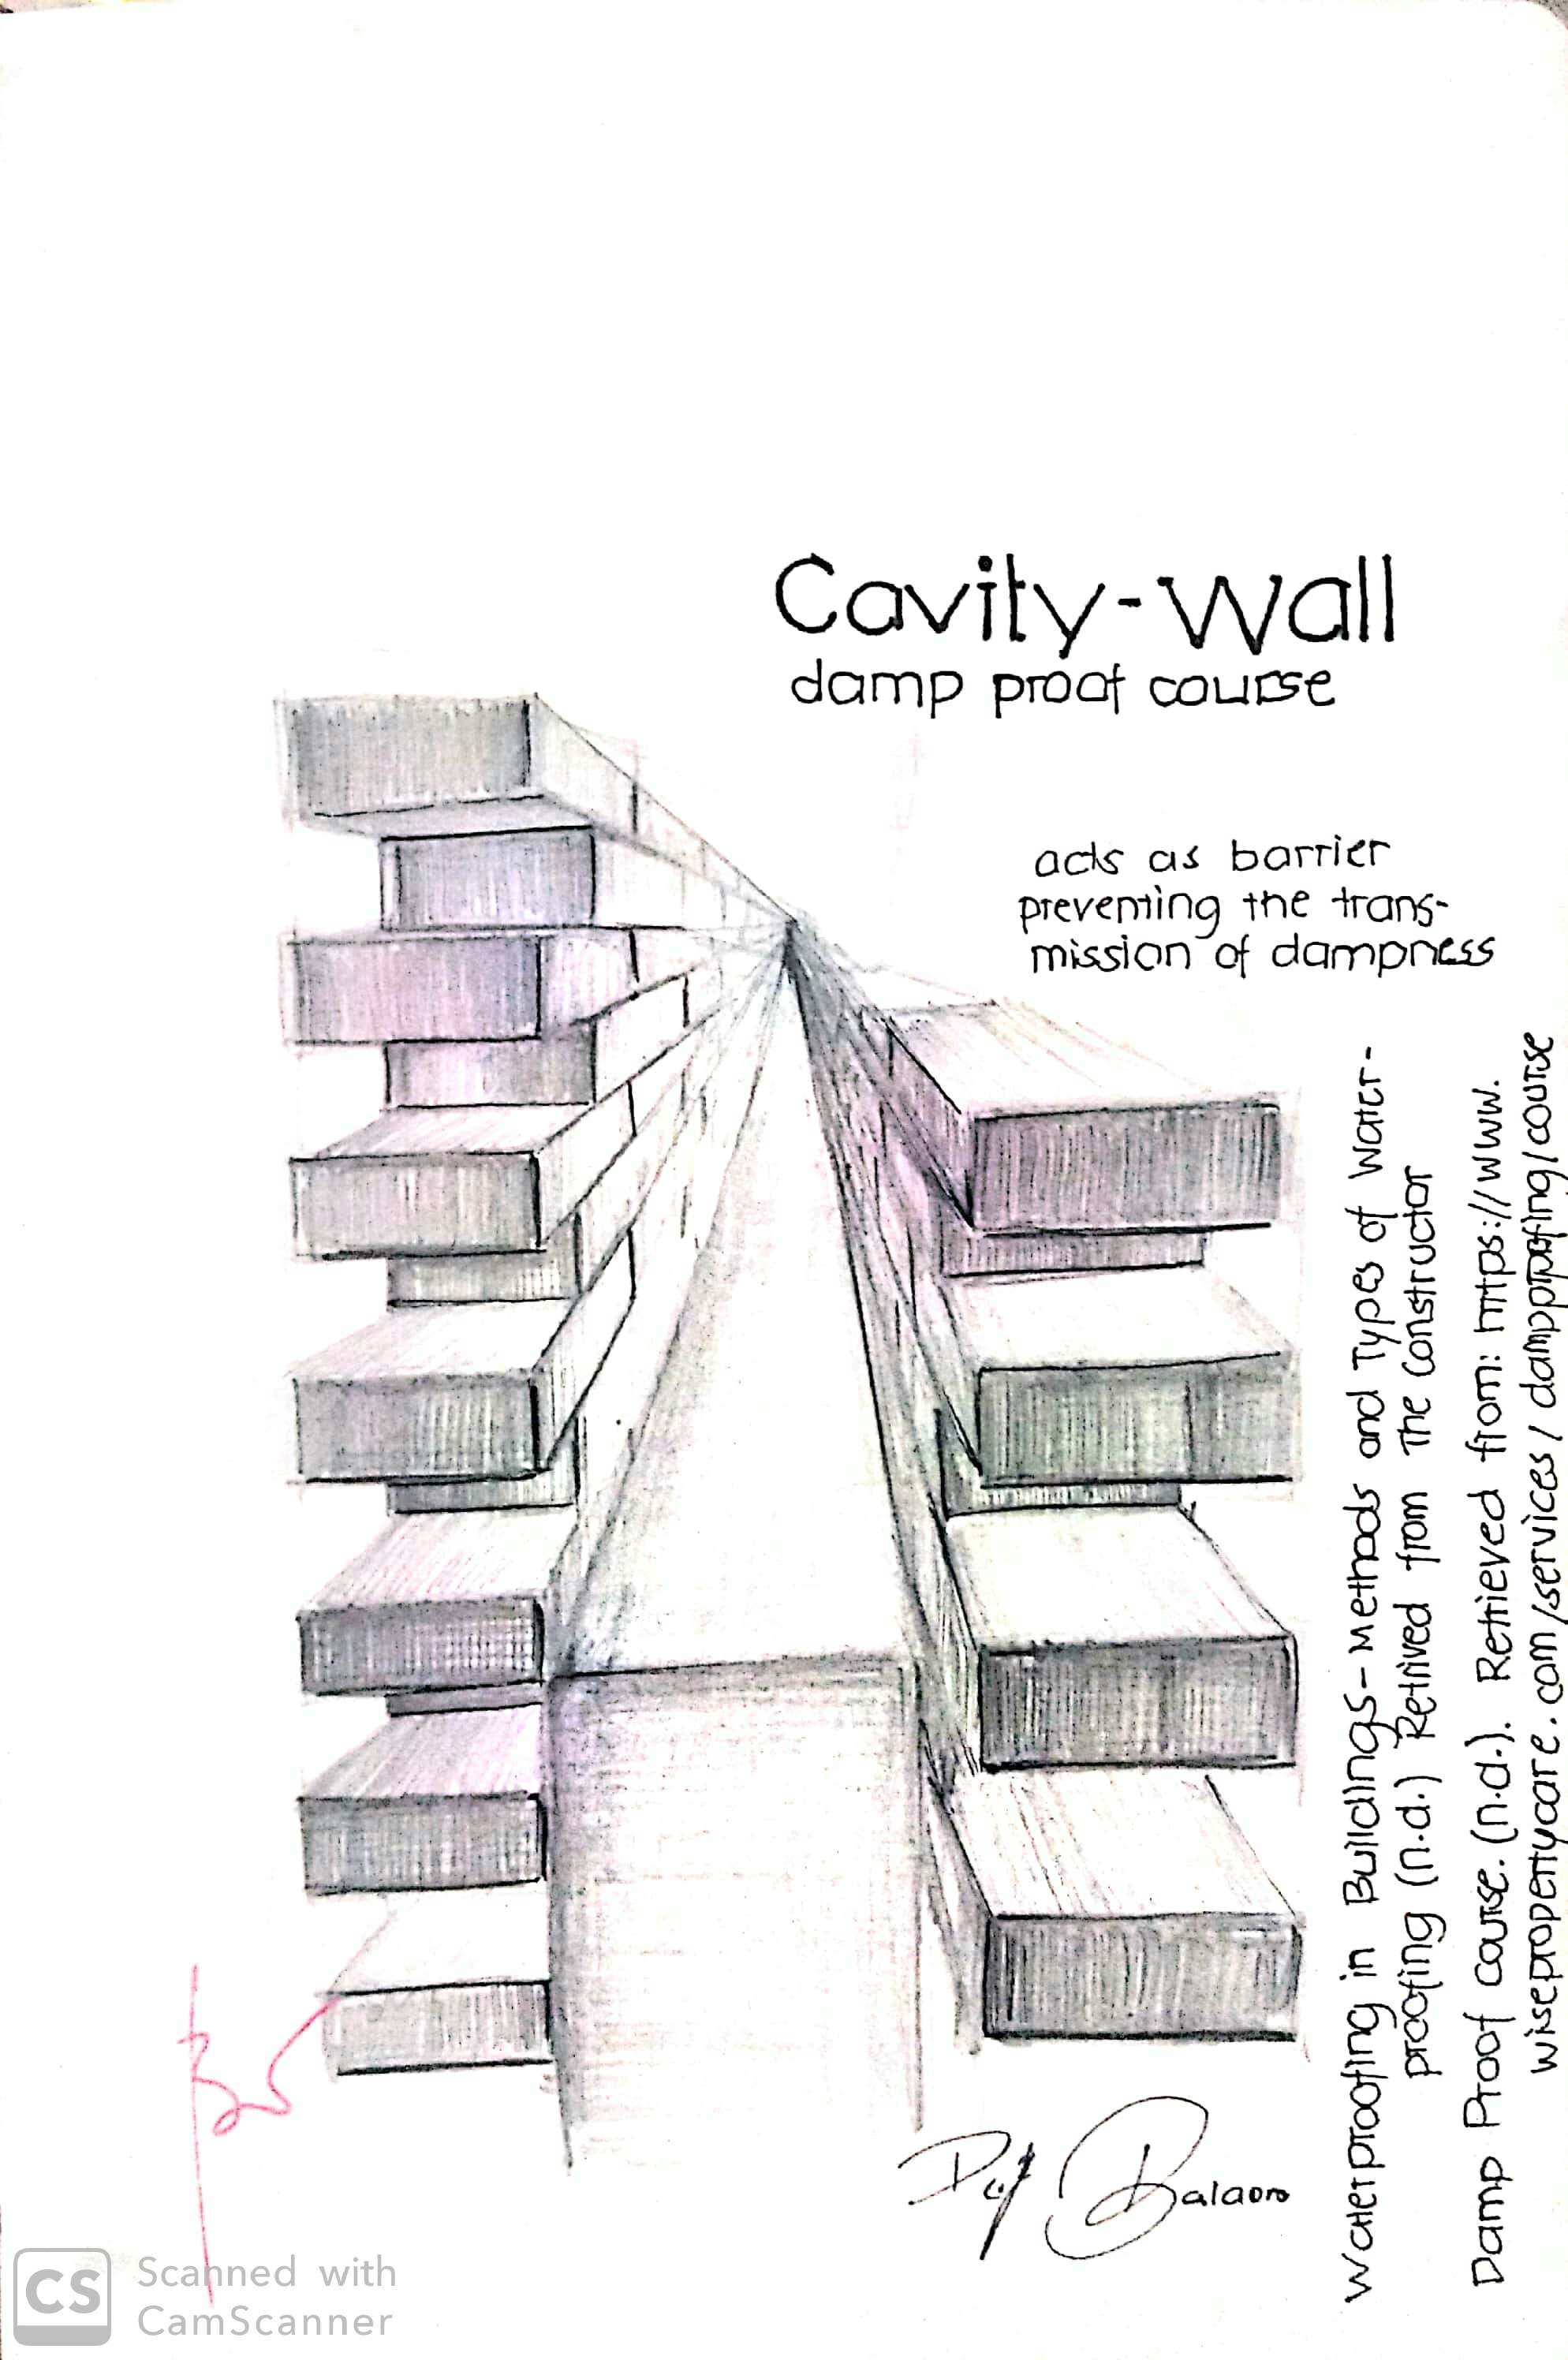 Cavity-Wall
damp proof course
acts as barrier
preventing the trans-
mission of dampness
Waterproofing in Buildings-Methods and Types of Water-
proofing (n.d.) Retrived from The Constructor
Damp Proof Course. (n.d.). Retrieved from: https://www.
wisepropertycare.com/services/dampproofing/course
Balaoro
CS Scanned with
CamScanner